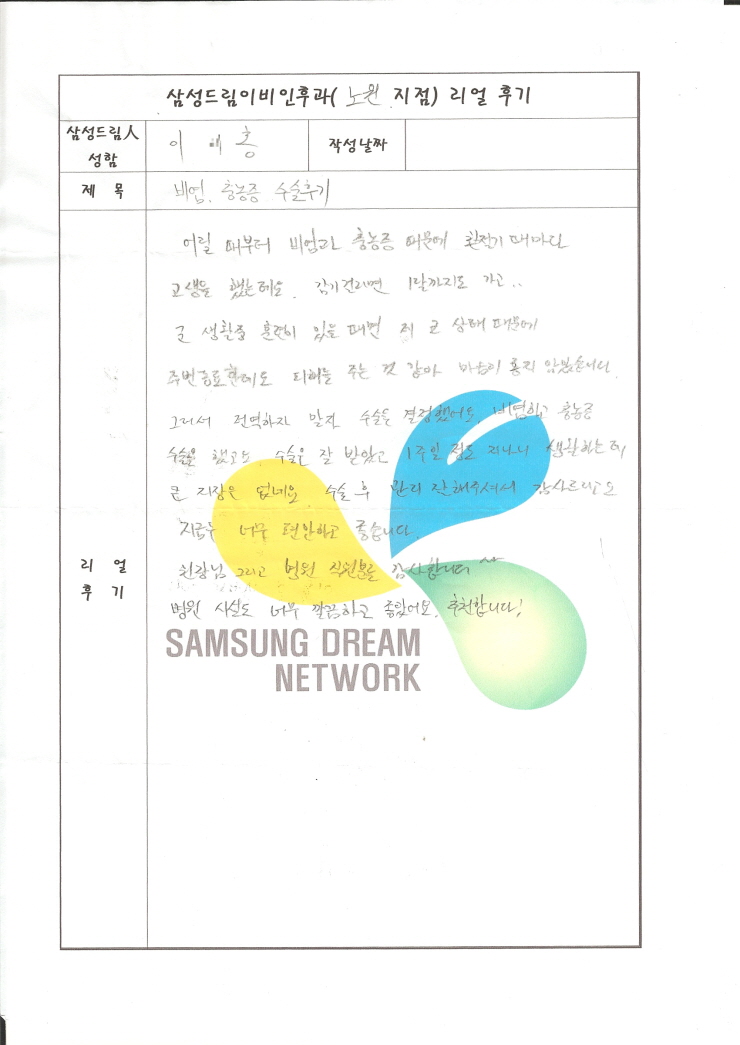 삼성드림이비인후과( 노원 지점) 리얼 후기
삼성드림人
성함
이 홍
작성날짜
제 목
비염, 충농증 수술후기
어릴 때부터 비염과 충농증 때문에 환절기 때마다
고생을 했는데요. 감기걸리면 1달까지도 가고..
군 생활중 훈련이 있을 때면 제 코 상태 때문에
주변동료한테도 피해를 주는 것 같아 마음이 좋지 않았습니다.
그래서 전역하자 말자 수술을 결정했어요. 비염하고 충농증
수술을 했고요 수술은 잘 받았고 1주일 정도 지나니 생활하는데
큰 지장은 없네요. 수술 후 관리 잘해주셔서 감사드리고요
지금은 너무 편안하고 좋습니다.
원장님 그리고 병원 직원분들 감사합니다 ^^
병원 시설도 너무 깔끔하고 좋았어요. 추천합니다!
리 얼
후 기
SAMSUNG DREAM
NETWORK